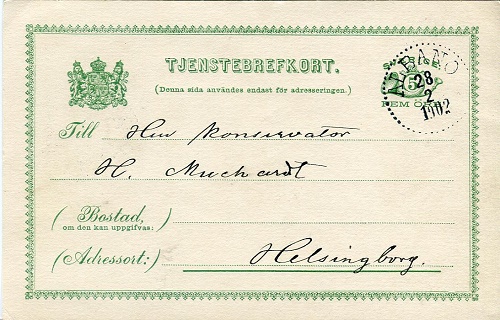 TJENSTEBREFKORT.
(Denna sida användes endast för adresseringen.)
SVERIGE
5
FEM ÖRE
ALBANO
28
2
1902
Till Herr Konservator
H. Muchardt
(Bostad,
om den kan uppgifvas:)
(Adressort:) Helsingborg.